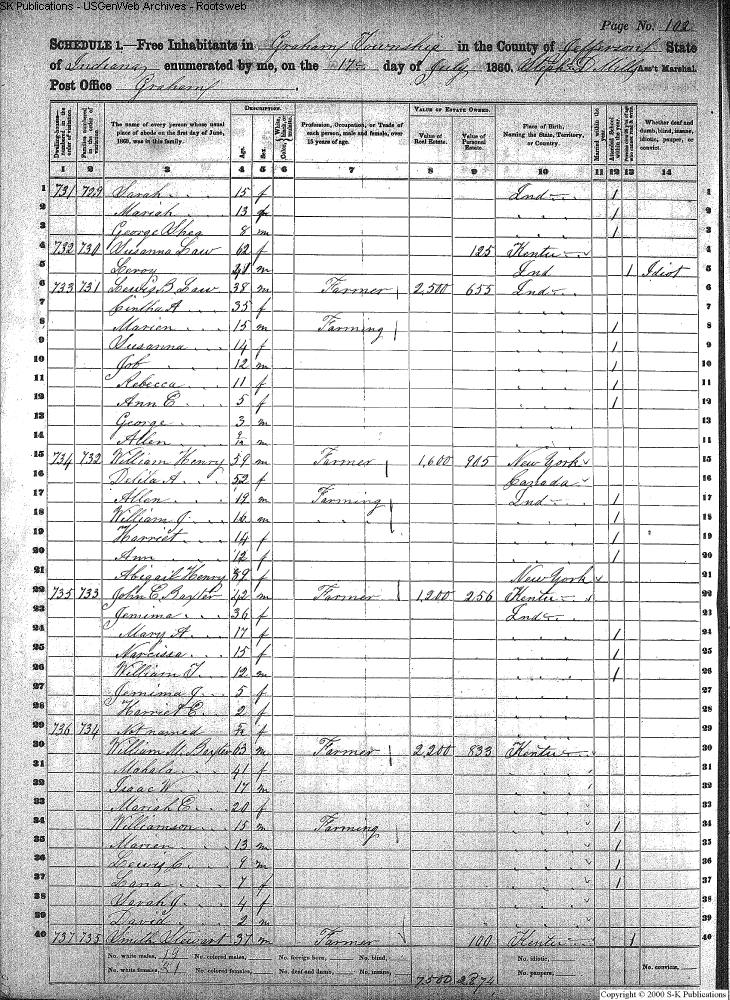 SK Publications - USGenWeb Archives - Rootsweb
Page No. 102
SCHEDULE 1.—Free Inhabitants in Graham Township in the County of Jefferson State
of Indiana enumerated by me, on the 17 day of July 1860. Ass't Marshal.
Post Office Graham
DESCRIPTION. VALUE OF ESTATE OWNED.
Dwelling-houses—numbered in the order of visitation.
Families numbered in the order of visitation.
The name of every person whose usual place of abode on the first day of June, 1860, was in this family.
Age. Sex. Color, White, black, or mulatto.
Profession, Occupation, or Trade of each person, male and female, over 15 years of age.
Value of Real Estate. Value of Personal Estate.
Place of Birth, Naming the State, Territory, or Country.
Married within the year. Attended School within the year.
Whether deaf and dumb, blind, insane, idiotic, pauper, or convict.
1 2 3 4 5 6 7 8 9 10 11 12 13 14
1 731 729 Sarah 15 f Ind / 1
2 Mariah 13 f / 2
3 George Shea 8 m / 3
4 732 730 Susanna Law 62 f 125 Kentu 4
5 Leroy m Ind 1 Idiot 5
6 733 731 Lewis B Law 38 m Farmer 2,500 655 Ind 6
7 Cintha A 35 f 7
8 Marien 15 m Farming / 8
9 Susanna 14 f / 9
10 Job 12 m / 10
11 Rebecca 11 f / 11
12 Ann E 5 f / 12
13 George 3 m 13
14 Allen m 14
15 734 732 William Henry 59 m Farmer 1,600 905 New York 15
16 Delila A 52 f Canada 16
17 Allen 19 m Farming Ind / 17
18 William J 16 m / 18
19 Harriet 14 f / 19
20 Ann 12 f / 20
21 Abigail Henry 89 f New York 21
22 735 733 John E Baxter m Farmer 1,200 256 Kentu 22
23 Jemima 36 f Ind 23
24 Mary A 17 f / 24
25 Narcissa 15 f / 25
26 William T 12 m / 26
27 Jemima J 5 f 27
28 Harriet E 2 f 28
29 736 734 Not named f 29
30 William M Baxter 63 m Farmer 2,200 833 Kentu 30
31 Mahala 41 f 31
32 Isaac W 17 m 32
33 Mariah E 20 f 33
34 Williamson 15 m Farming / 34
35 Marien 13 m / 35
36 Lewis C 9 m / 36
37 Lana 7 f / 37
38 Sarah J 4 f 38
39 David 2 m 39
40 737 735 Smith Stewart 37 m Farmer 100 Kentu 1 40
No. white males, 19 No. colored males, No. foreign born, No. blind, No. idiotic,
No. white females, 21 No. colored females, No. deaf and dumb, No. insane, 7500 2,874 No. paupers, No. convicts,
Copyright © 2000 S-K Publications